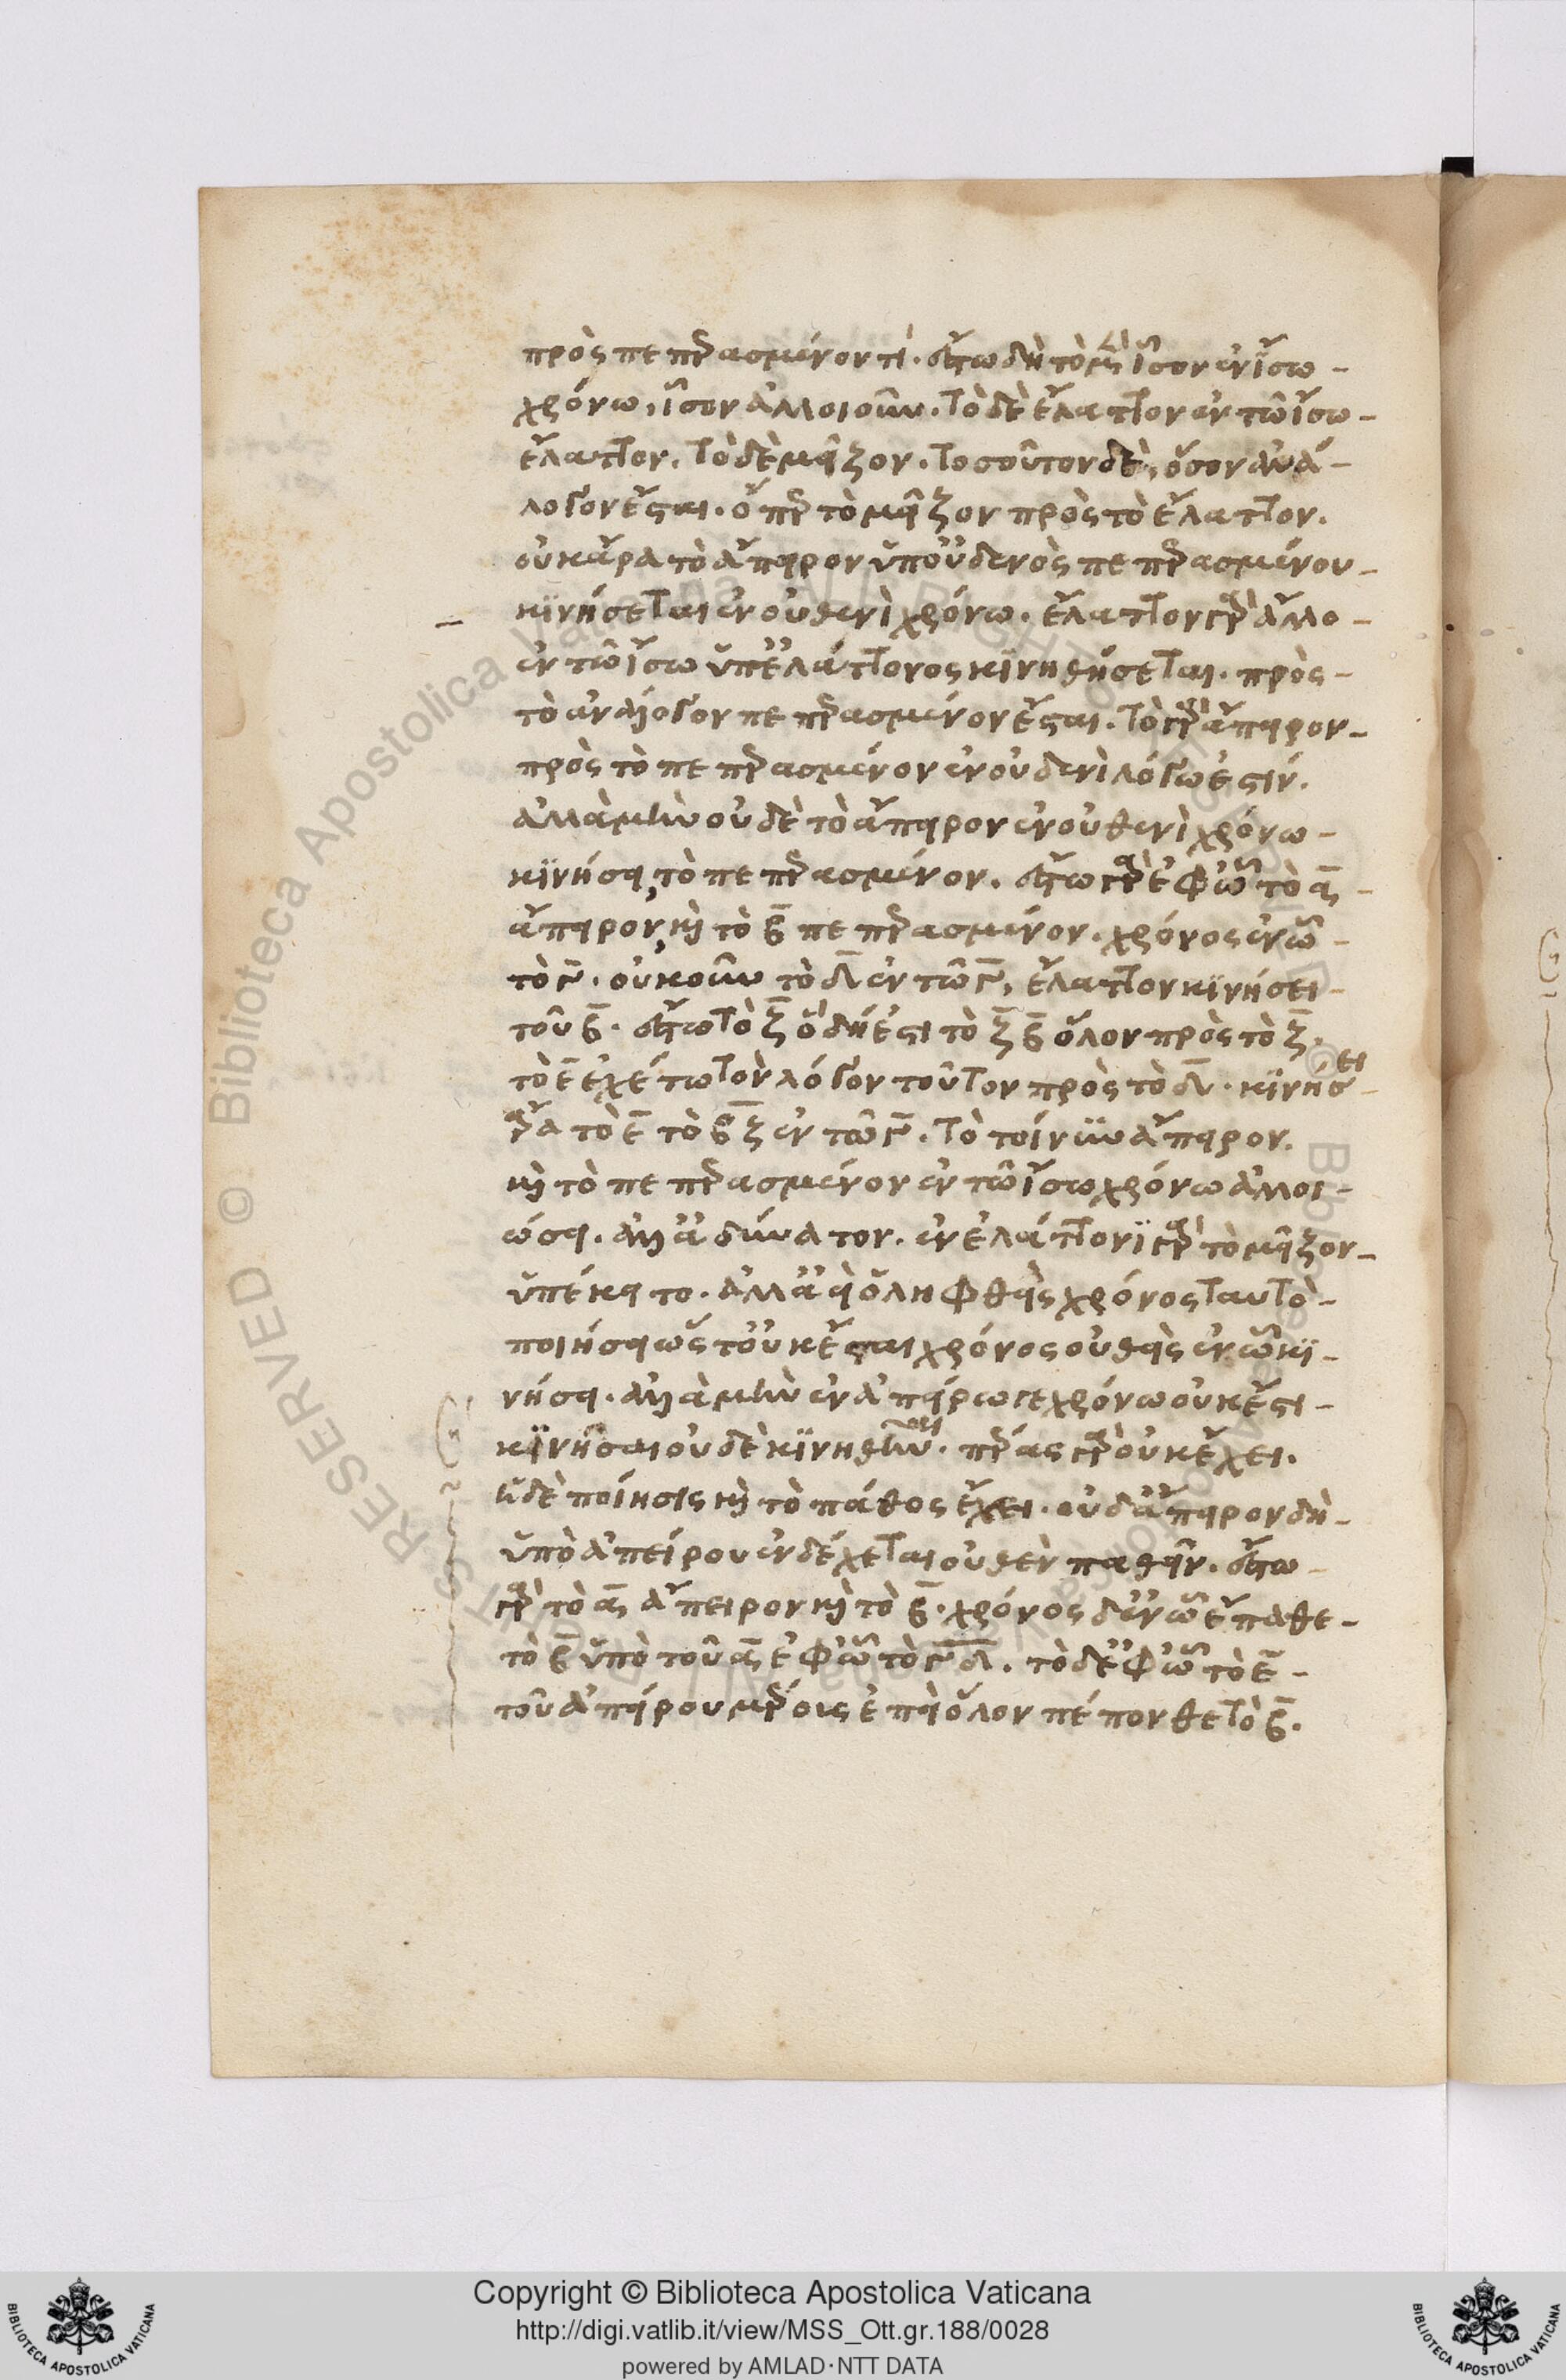 πρὸς πεπερασμένον τί. ἔστω δὴ τὸ μὲν ἴσον ἐν ἴσω
χρόνω, ἴσον ἀλλοιοῦν. τὸ δὲ ἔλαττον ἐν τῶ ἴσω
ἔλαττον. τὸ δὲ μεῖζον. τοσοῦτον δὲ, ὅσον ἀνά-
λογον ἔσται. ὅπερ τὸ μεῖζον πρὸς τὸ ἔλαττον.
οὐκ ἄρα τὸ ἄπειρον ὑπ' οὐδενὸς πεπερασμένου
κϊνήσεται ἐν οὐθενὶ χρόνω. ἔλαττον γὰρ ἄλλο
ἐν τῶ ἴσω ὑπ' ἐλάττονος κϊνηθήσεται. πρὸς
τὸ ἀνάλογον πεπερασμένον ἔσται. τὸ γὰρ ἄπειρον
πρὸς τὸ πεπερασμένον ἐν οὐδενὶ λόγω ἐστίν.
ἀλλὰ μὴν οὐδὲ τὸ ἄπειρον ἐν οὐθενὶ χρόνω
κϊνήσει, τὸ πεπερασμένον. ἔστω γὰρ ἐφ' ὧ τὸ α
ἄπειρον, καὶ τὸ β πεπερασμένον. χρόνος ἐν ὧ
τὸ γ. οὐκοῦν τὸ δ ἐν τῶ γ, ἔλαττον κϊνήσει
τοῦ β. ἔστω τὸ ζ ὃ δή ἐστι τὸ ζβ ὅλον πρὸς τὸ ζ.
τὸ ε ἐχέτω τὸν λόγον τοῦτον πρὸς τὸ δ. κϊνήσει
ἄρα τὸ ε τὸ βζ ἐν τῶ γ. τὸ τοίνϋν ἄπειρον.
καὶ τὸ πεπερασμένον ἐν τῶ ἴσω χρόνω ἀλλοι-
ώσει. ἀλλ' ἀδύνατον. ἐν ἐλάττονϊ γὰρ τὸ μεῖζον
ὑπέκειτο. ἀλλ' ἀεὶ ὁ ληφθεὶς χρόνος ταυτὸ
ποιήσει ὥστ' οὐκ ἔσται χρόνος οὐθεὶς ἐν ὧ κϊ-
νήσει. ἀλλὰ μὴν ἐν ἀπείρω γε χρόνω οὐκ ἔστι
κϊνῆσαι οὐδὲ κϊνηθῆναι. πέρας γὰρ οὐκ ἔχει.
ἡ δὲ ποίησις καὶ τὸ πάθος ἔχει. οὐδ' ἄπειρον δὴ
ὑπὸ ἀπείρου ἐνδέχεται οὐθὲν παθεῖν. ἔστω
γὰρ τὸ α ἄπειρον καὶ τὸ β. χρόνος δ' ἐν ὧ ἔπαθε
τὸ β ὑπὸ τοῦ α ἐφ' ὧ τὸ γδ. τὸ δ' ἐφ' ὧ τὸ ε
τοῦ ἀπείρου μέρους ἐπεὶ ὅλον πέπονθε τὸ β.
Copyright © Biblioteca Apostolica Vaticana
http://digi.vatlib.it/view/MSS_Ott.gr.188/0028
powered by AMLAD·NTT DATA
BIBLIOTECA APOSTOLICA VATICANA
BIBLIOTECA APOSTOLICA VATICANA